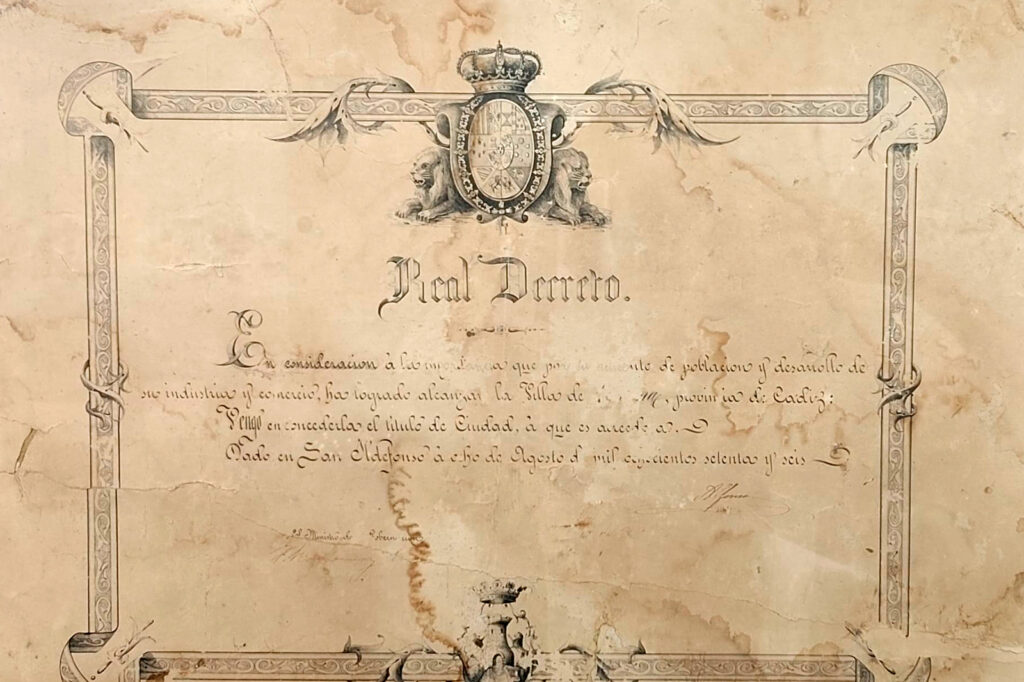 Real Decreto.
En consideracion á la importancia que por su aumento de poblacion y desarollo de
su industria y comercio, ha logrado alcanzar la Villa de , provincia de Cadiz:
Vengo en concederla el título de Ciudad, á que es acreedora.
Dado en San Ildefonso á ocho de Agosto de mil ochocientos setenta y seis
El Ministro de